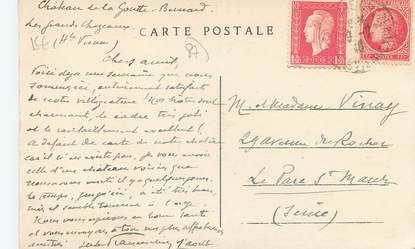 Château de la Goutte-Bernard
Les Grands Chezeaux
(Hte Vienne)
15E
87
CARTE POSTALE
Chers amis,
Voici déjà une semaine que nous
sommes ici, entièrement satisfaits
de notre villégiature. Nos hôtes sont
charmants, le cadre très joli
et le ravitaillement excellent !
A défaut de carte de notre château
car il n'en existe pas, je vous envoie
celle d'un château voisin que
nous avons visité il y a quelques jours.
Le temps, jusqu'ici, a été très beau,
mais
Nous vous espérons en bonne santé
et vous envoyons à tous nos plus affectueuses
amitiés
M. et Madame Vinay
29 avenue du Rocher
Le Parc St Maur
(Seine)